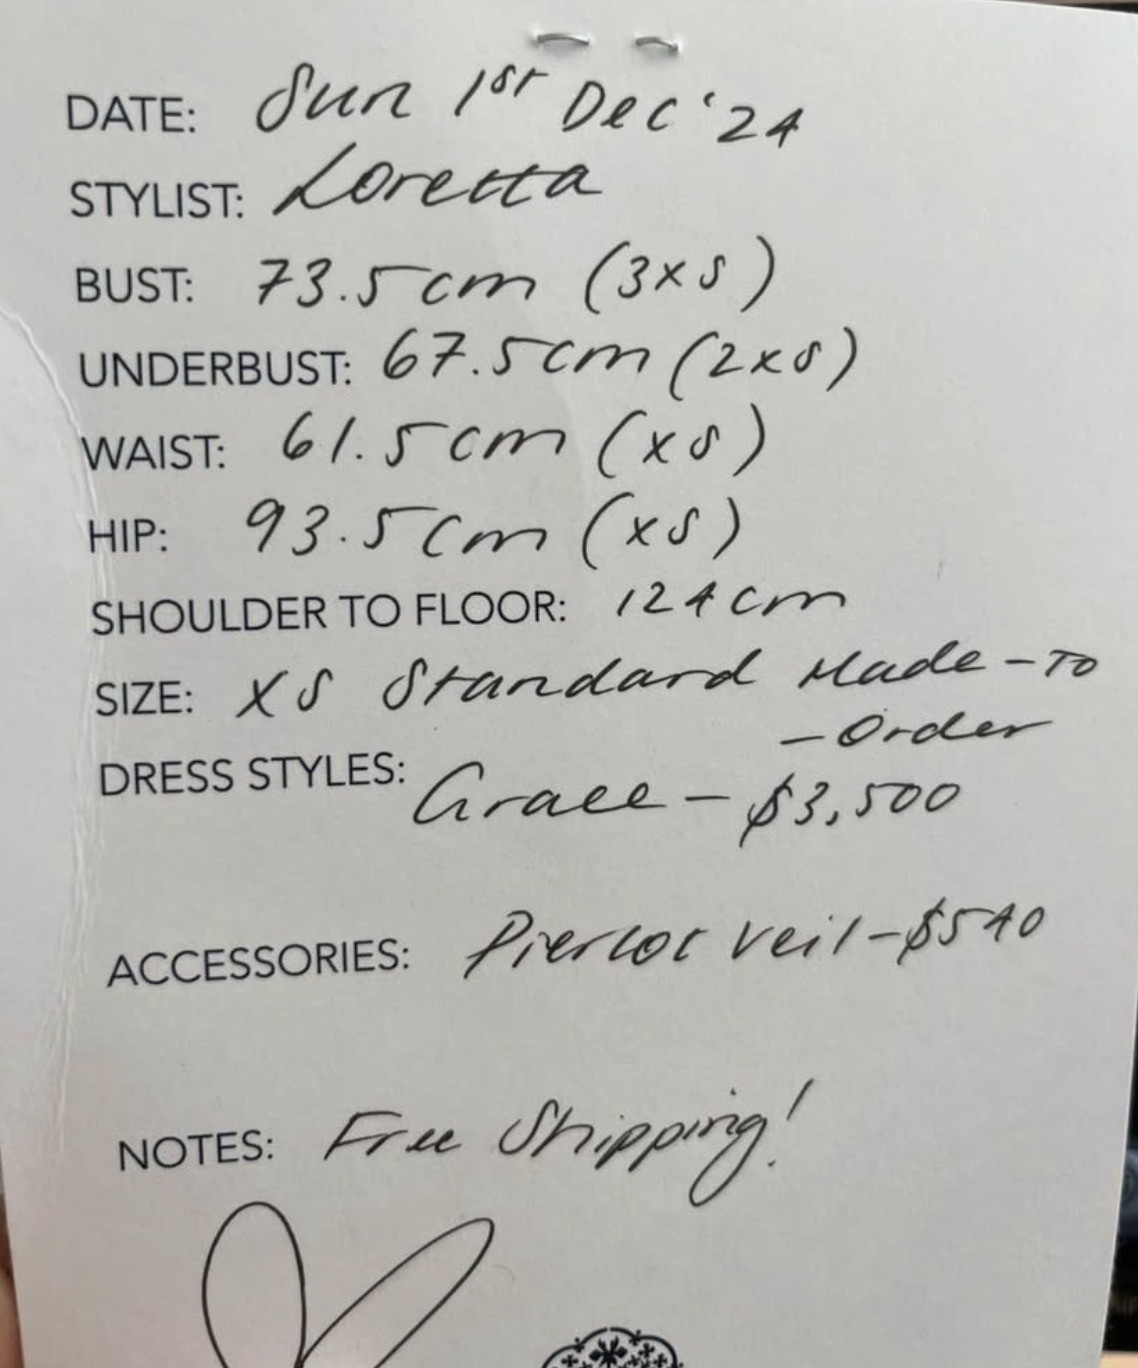 DATE: Sun 1st Dec '24
STYLIST: Loretta
BUST: 73.5cm (3xs)
UNDERBUST: 67.5cm (2xs)
WAIST: 61.5cm (xs)
HIP: 93.5cm (xs)
SHOULDER TO FLOOR: 124cm
SIZE: XS Standard Made-To
-Order
DRESS STYLES: Grace - $3,500
ACCESSORIES: Pierlot Veil - $540
NOTES: Free Shipping!